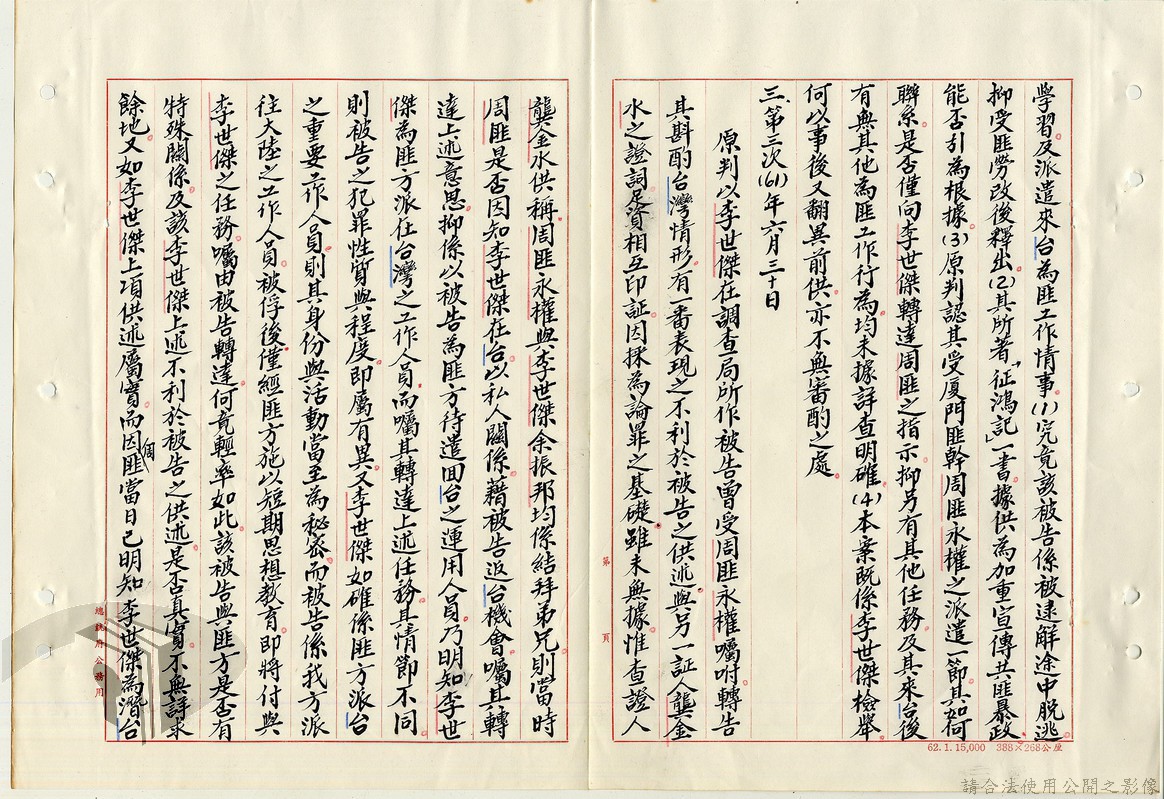 學習。及派遣來台為匪工作情事。(1)究竟該被告係被逮解途中脫逃
抑受匪勞改後釋出。(2)其所著「征鴻記」一書據供為加重宣傳共匪暴政。
能否引為根據。(3)原判認其受厦門匪幹周匪永權之派遣一節。其如何
聯系。是否僅向李世傑轉達周匪之指示。抑另有其他任務。及其來台後
有無其他為匪工作行為。均未據詳查明確。(4)本案既係李世傑檢舉。
何以事後又翻異前供。亦不無審酌之處。
三、第三次(61)年六月三十日
原判以李世傑在調查局所作被告曾受周匪永權囑咐。轉告
其斟酌台灣情形。有一番表現之不利於被告之供述。與另一証人龔金
水之證詞足資相互印証。因採為論罪之基礎。雖未無據。惟查證人
龔金水供稱。周匪永權與李世傑余振邦均係結拜弟兄。則當時
周匪是否因知李世傑在台。以私人關係藉被告返台機會。囑其轉
達上述意思。抑係以被告為匪方待遣回台之運用人員。乃明知李世
傑為匪方派在台灣之工作人員。而囑其轉達上述任務。其情節不同。
則被告之犯罪性質與程度。即屬有異。又李世傑如確係匪方派台
之重要工作人員。則其身份與活動當至為秘密。而被告係我方派
往大陸之工作人員。被俘後僅經匪方施以短期思想教育。即將付與
李世傑之任務。囑由被告轉達。何竟輕率如此。該被告與匪方是否有
特殊關係。及該李世傑上述不利於被告之供述。是否真實。不無詳求
餘地。又如李世傑上項供述屬實。而因周匪當日已明知李世傑為潛台
第 頁
總統府公務用
62.1.15,000 388×268公厘
請合法使用公開之影像